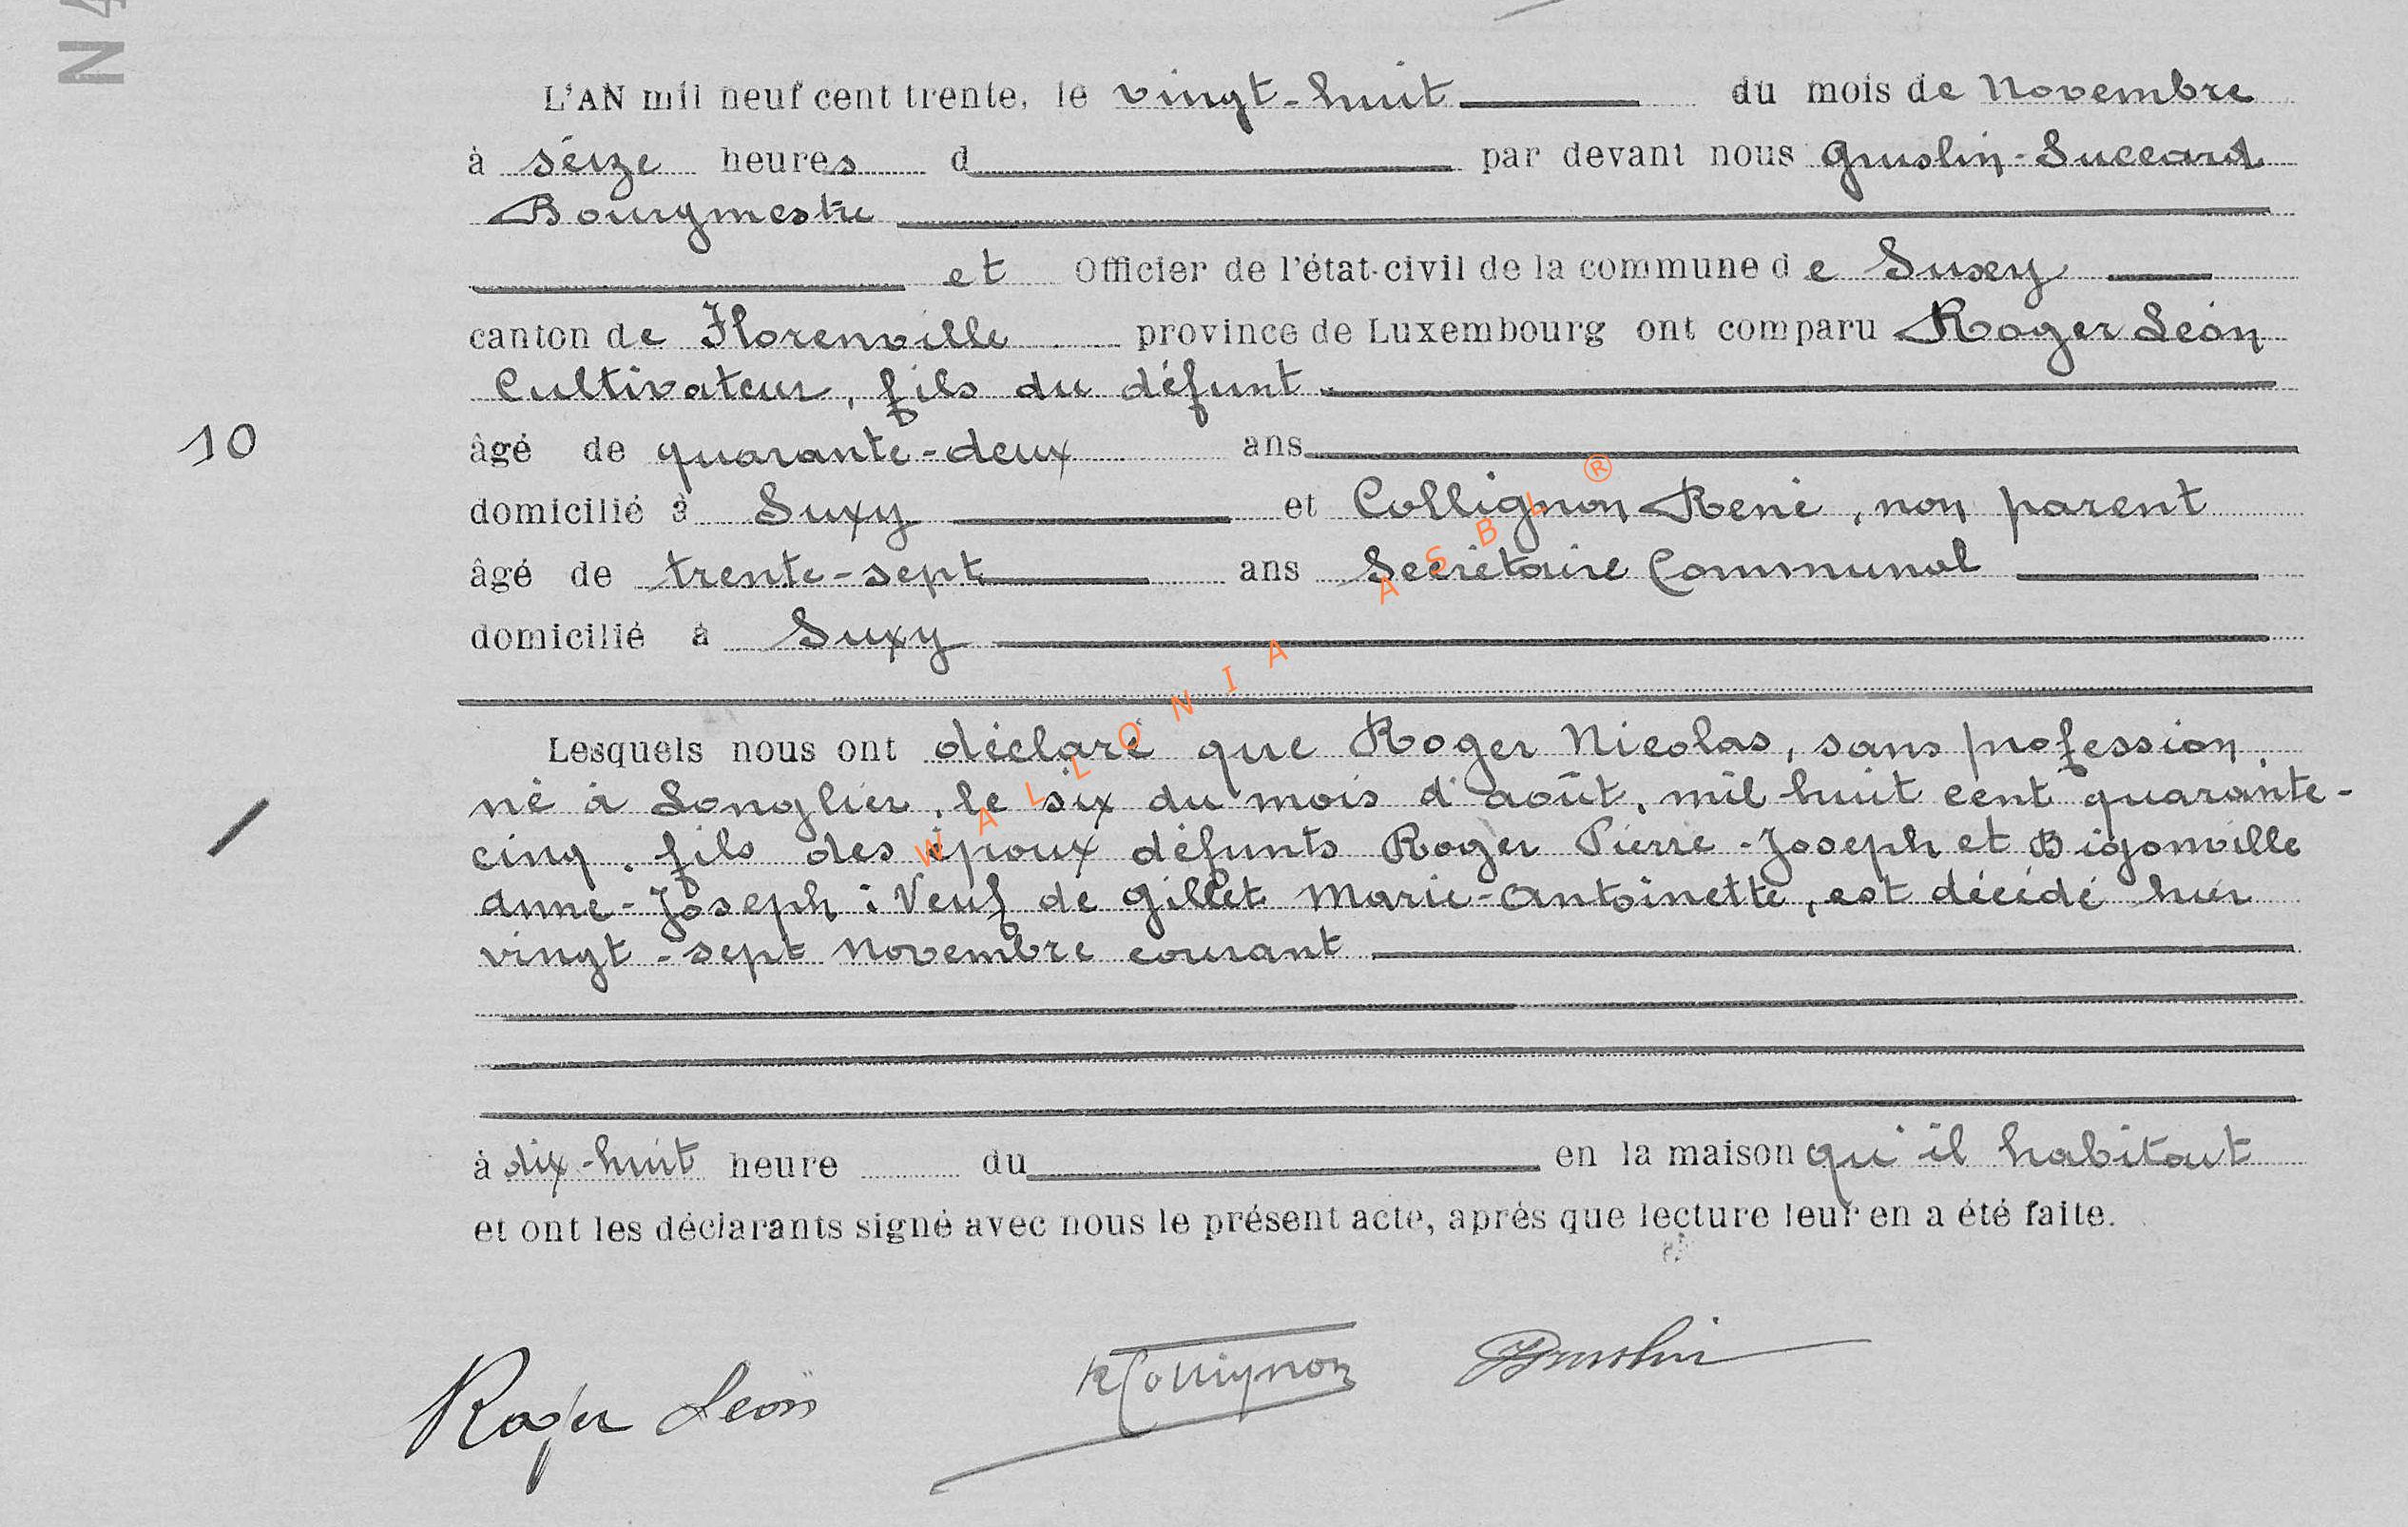 N 4
L'AN mil neuf cent trente, le vingt-huit du mois de Novembre
à seize heures d par devant nous Gruslin-Succard
Bourgmestre
et Officier de l'état-civil de la commune de Suxy
canton de Florenville province de Luxembourg ont comparu Roger Léon
Cultivateur, fils du défunt
10 âgé de quarante-deux ans
domicilié à Suxy et Collignon René, non parent
âgé de trente-sept ans Secrétaire Communal
domicilié à Suxy
Lesquels nous ont déclaré que Roger Nicolas, sans profession,
né à Longlier, le six du mois d'août, mil huit cent quarante-
cinq, fils des époux défunts Roger Pierre-Joseph et Bigonville
Anne-Joseph : Veuf de Gillet Marie-Antoinette, est décédé hier
vingt-sept Novembre courant
à dix-huit heure du en la maison qu'il habitait
et ont les déclarants signé avec nous le présent acte, après que lecture leur en a été faite.
Roger Léon R Collignon Gruslin
WALLONIA ASBL ®